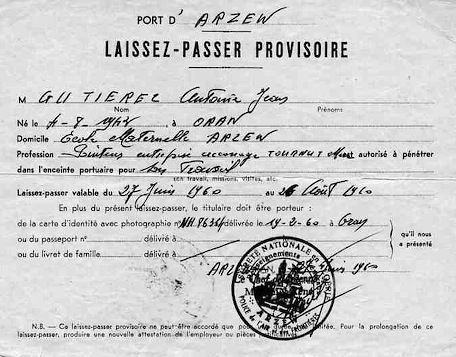 PORT D' ARZEW
LAISSEZ-PASSER PROVISOIRE
M GUTIEREZ Antoine Jean
Nom Prénoms
Né le à ORAN
Domicile Ecole Maternelle ARZEW
Profession entreprise TOURNUT est autorisé à pénétrer
dans l'enceinte portuaire pour son Travail
son travail, missions, visites, etc.
Laissez-passer valable du 27 Juin 1960 au 26 Août 1960
En plus du présent laissez-passer, le titulaire doit être porteur :
de la carte d'identité avec photographie n° délivrée le 19-2-60 à Oran
ou du passeport n° délivré à qu'il nous
ou du livret de famille délivré à a présenté
ARZEW Juin 1960
SURETÉ NATIONALE en ALGÉRIE
ARZEW
N.B. — Ce laissez-passer provisoire ne peut-être accordé que pour limitée. Pour la prolongation de ce
laissez-passer, produire une nouvelle attestation de l'employeur ou pièces